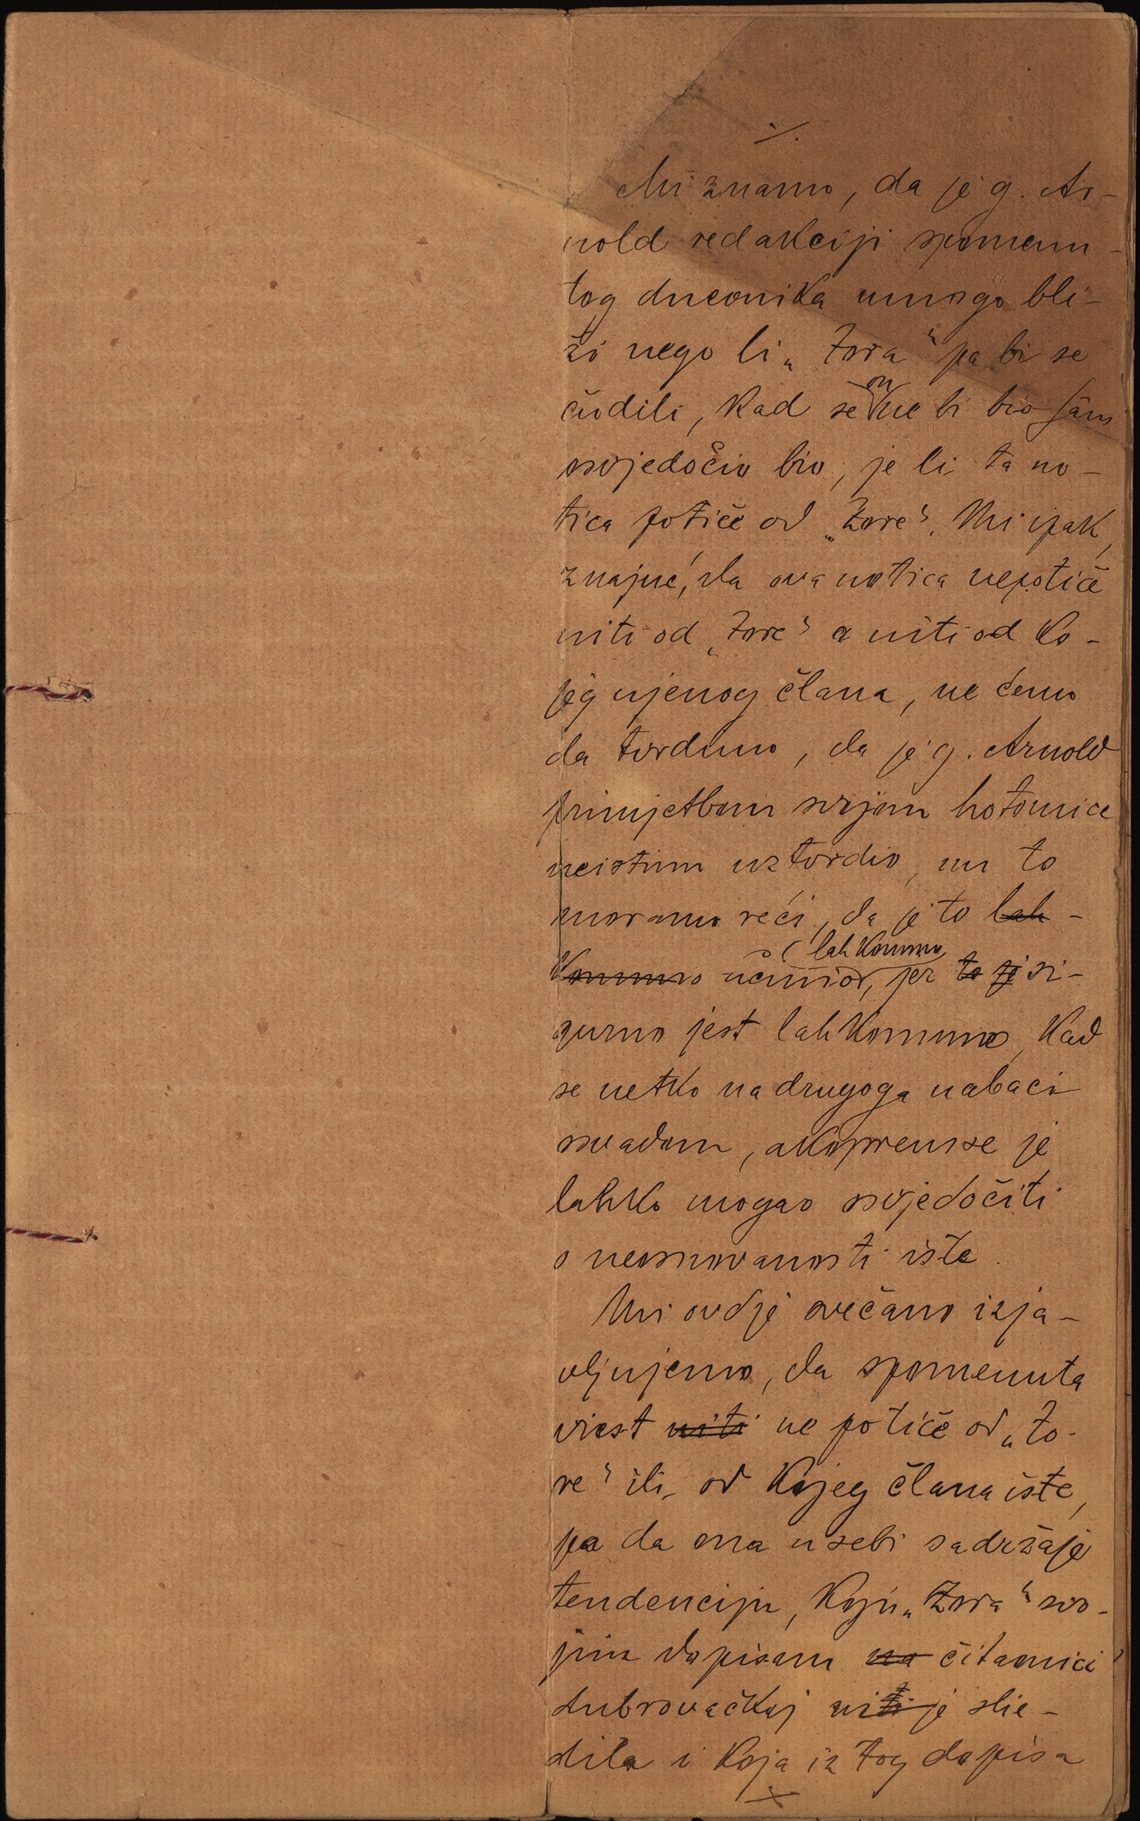 ./.
Mi znamo, da je g. Ar-
nold redakciji spomenu-
tog dnevnika mnogo bli-
ži nego li „Zora“ pa bi se
čudili, kad se on ne bi bio sam
osvjedočio bio, je li ta no-
tica potiče od „Zore“. Mi ipak,
znajuć, da ova notica nepotiče
niti od „Zore“ a niti od ko-
jeg njenog člana, ne ćemo
da tvrdimo, da je g. Arnold
primjetbom svojom hotomice
neistinu uztvrdio, no to
moramo reći, da je to lah-
koumno učinio, lahkoumno jer to je si-
gurno jest lahkoumno, kad
se netko na drugoga nabaci
svadom, akoprem se je
lahko mogao osvjedočiti
o neosnovanosti iste.
Mi ovdje svečano izja-
vljujemo, da spomenuta
viest niti ne potiče od „Zo-
re“ ili od kojeg člana iste,
pa da ona u sebi sadržaje
tendenciju, koju „Zora“ svo-
jim dopisom na čitaonici
dubrovačkoj niti je slie-
dila i koja iz tog dopisa